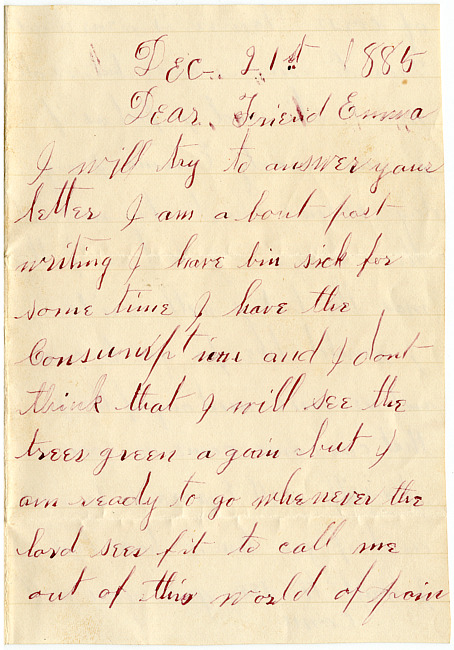 Dec. 21st 1885
Dear. Friend Emma
I will try to answer your
letter I am a bout past
writing I have bin sick for
some time I have the
Consumption and I dont
think that I will see the
trees green a gain but I
am ready to go whenever the
lord sees fit to call me
out of this world of pain